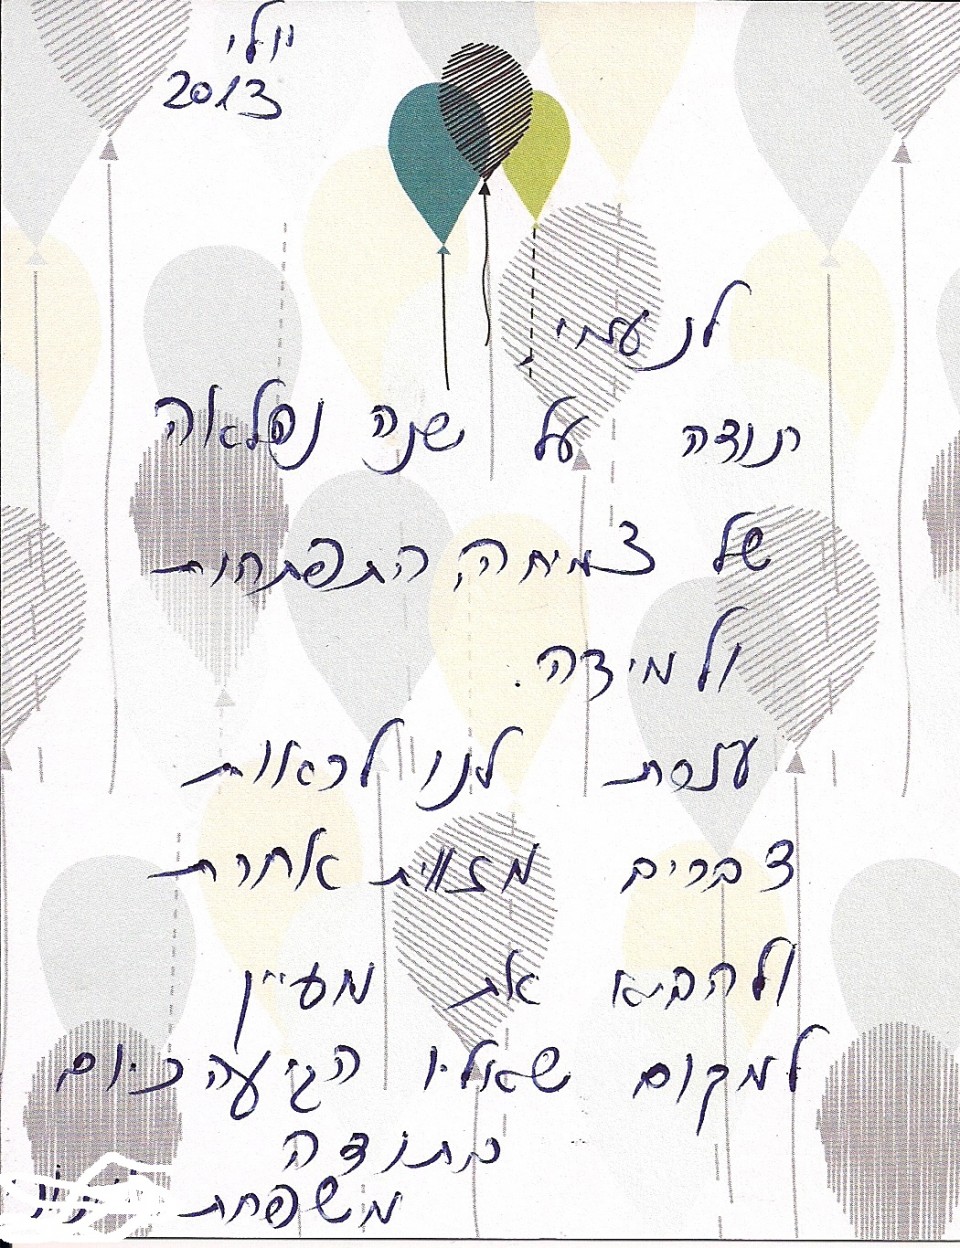 יולי
2013
לנעמי
תודה על שנה נפלאה
של צמיחה, התפתחות
ולמידה.
עזרת לנו לראות
דברים מזווית אחרת
ולהביא את מעיין
למקום שאליו הגיעה כיום
בתודה
משפחת